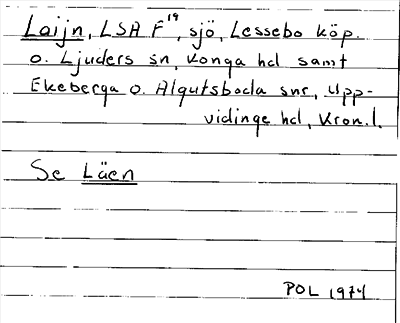 Laijn, LSA F19, sjö, Lessebo köp.
o. Ljuders sn, Konga hd samt
Ekeberga o. Algutsboda snr, Upp-
vidinge hd, Kron. l.
Se Läen
POL 1974